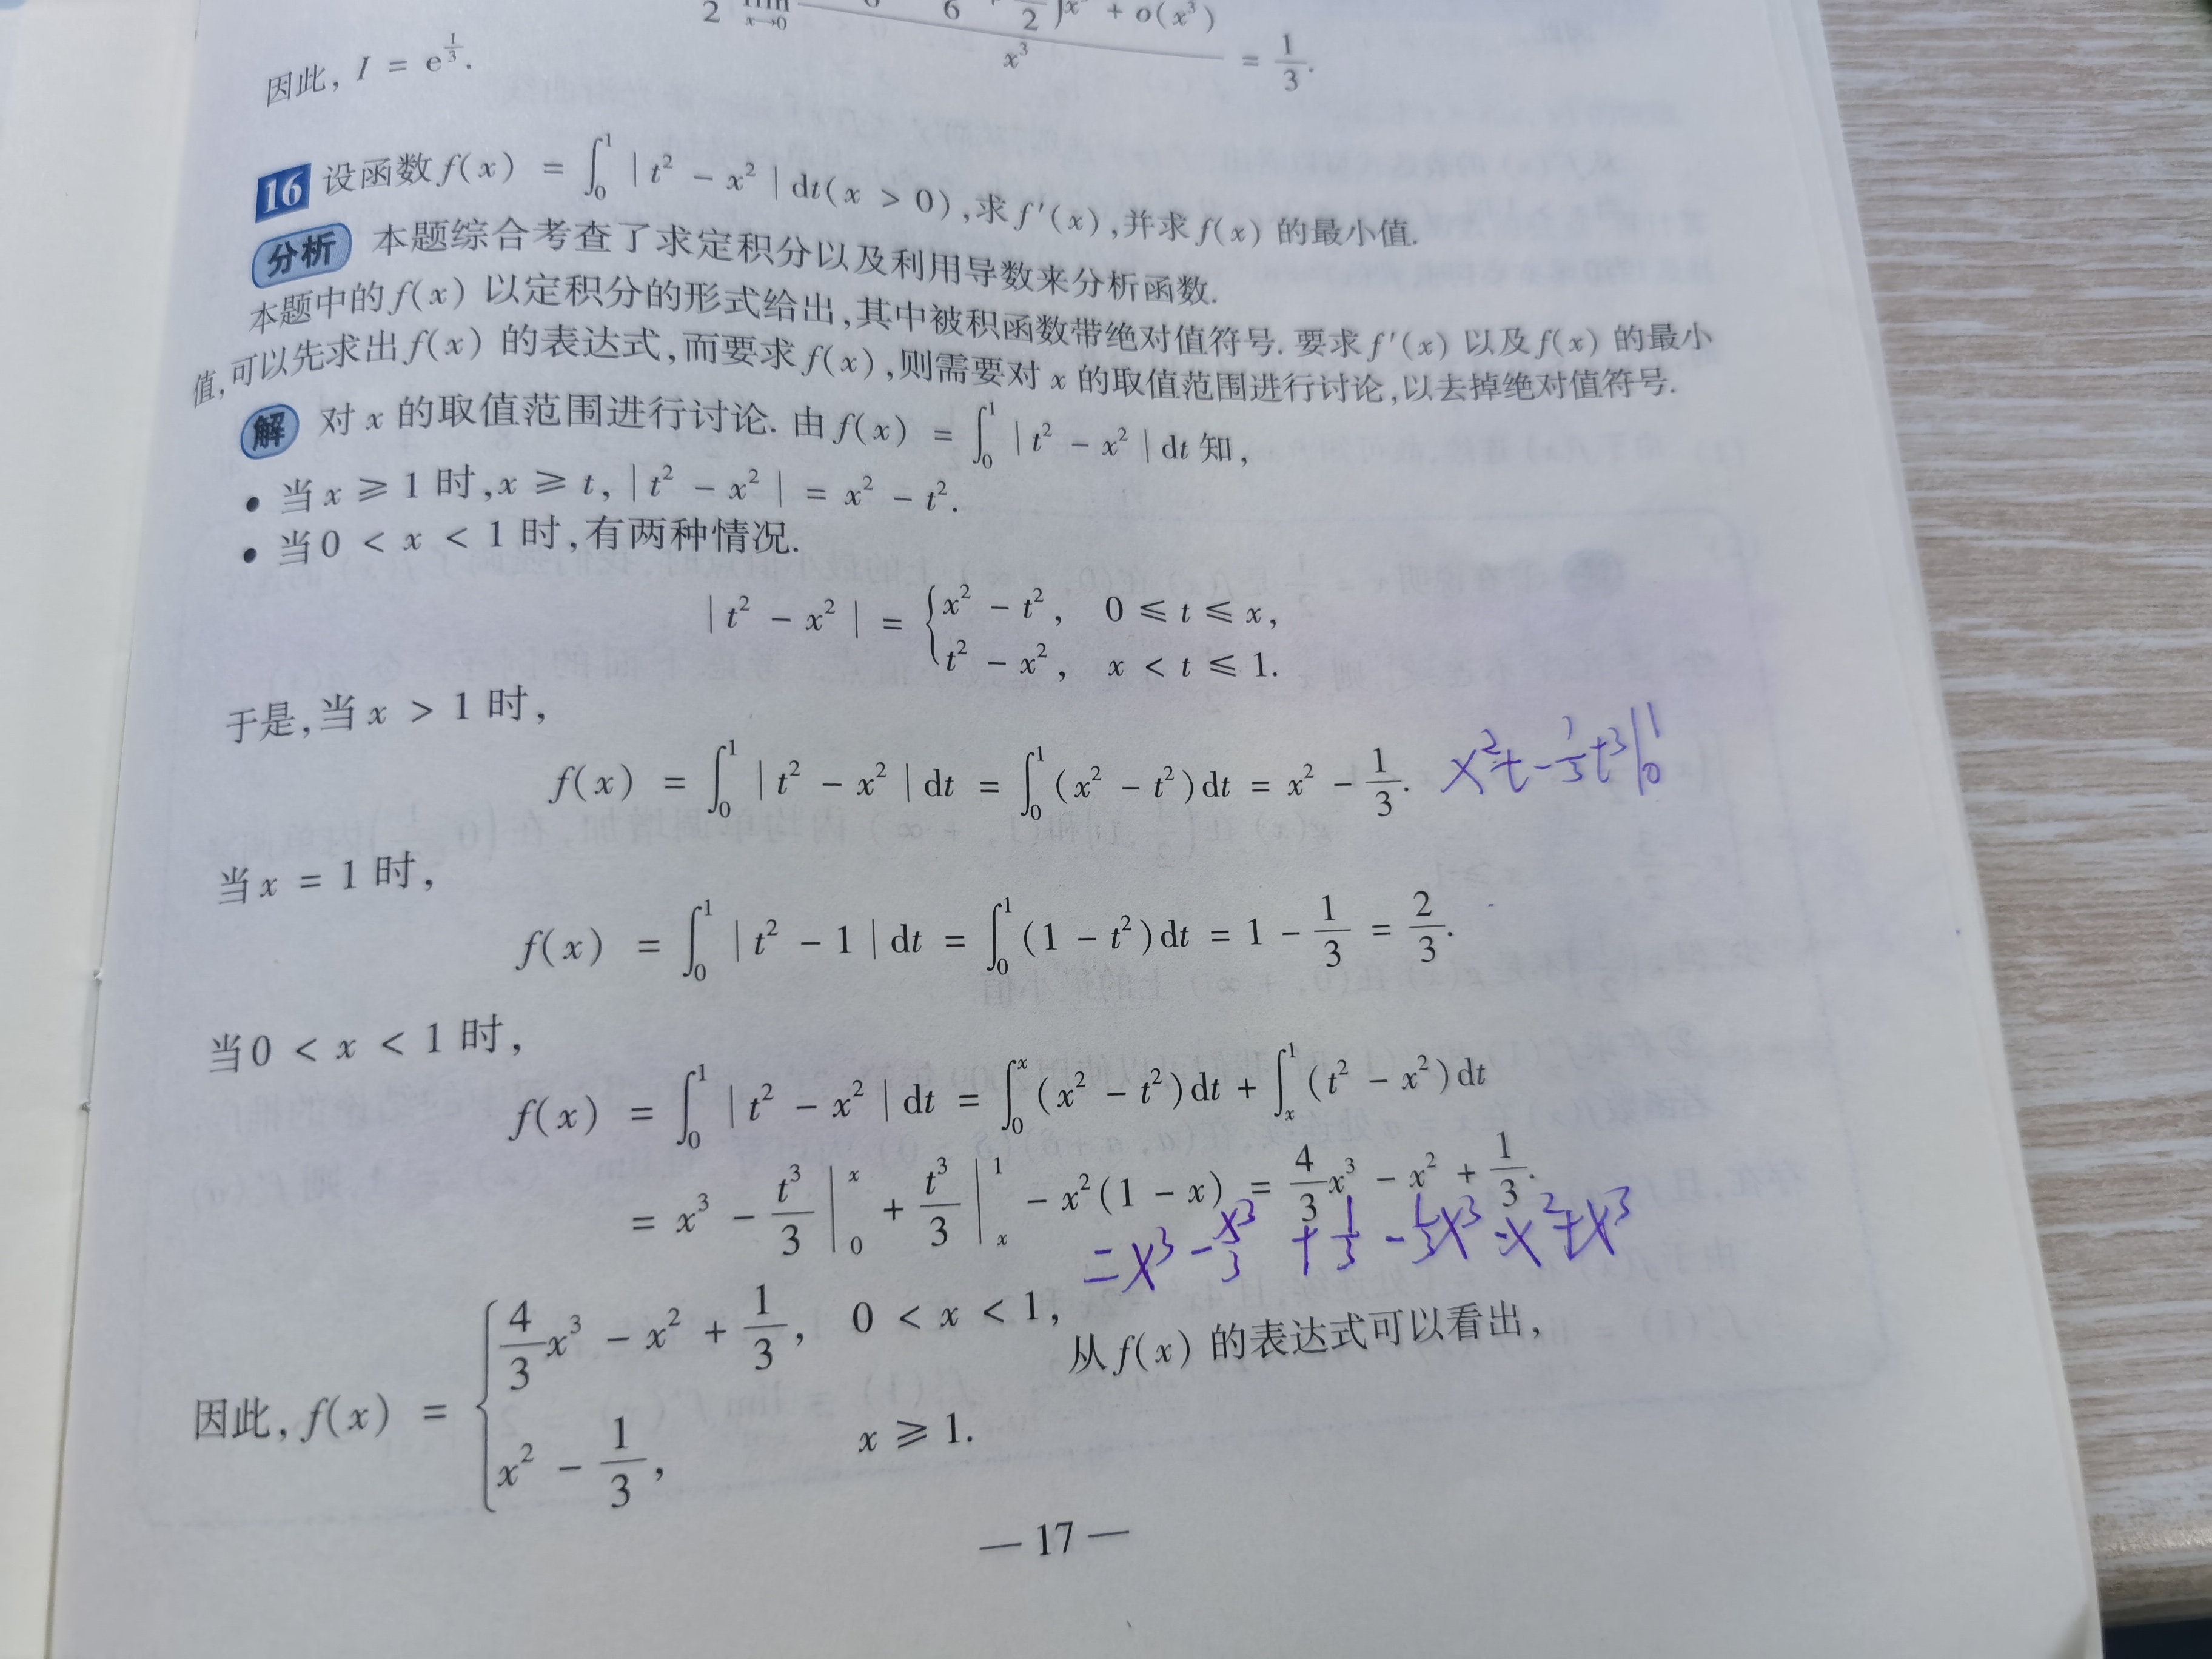 2 lim x→0 6 2 )x + o(x³)
x³ = 1/3.
因此, I = e^{1/3}.
16 设函数 f(x) = ∫₀¹ | t² − x² | dt (x > 0), 求 f′(x), 并求 f(x) 的最小值.
分析 本题综合考查了求定积分以及利用导数来分析函数.
本题中的 f(x) 以定积分的形式给出, 其中被积函数带绝对值符号. 要求 f′(x) 以及 f(x) 的最小
值, 可以先求出 f(x) 的表达式, 而要求 f(x), 则需要对 x 的取值范围进行讨论, 以去掉绝对值符号.
解 对 x 的取值范围进行讨论. 由 f(x) = ∫₀¹ | t² − x² | dt 知,
• 当 x ⩾ 1 时, x ⩾ t, | t² − x² | = x² − t².
• 当 0 < x < 1 时, 有两种情况.
| t² − x² | = { x² − t², 0 ⩽ t ⩽ x,
t² − x², x < t ⩽ 1.
于是, 当 x > 1 时,
f(x) = ∫₀¹ | t² − x² | dt = ∫₀¹ (x² − t²) dt = x² − 1/3. x²t − 1/3 t³ |₀¹
当 x = 1 时,
f(x) = ∫₀¹ | t² − 1 | dt = ∫₀¹ (1 − t²) dt = 1 − 1/3 = 2/3.
当 0 < x < 1 时,
f(x) = ∫₀¹ | t² − x² | dt = ∫₀ˣ (x² − t²) dt + ∫ₓ¹ (t² − x²) dt
= x³ − t³/3 |₀ˣ + t³/3 |ₓ¹ − x²(1 − x) = 4/3 x³ − x² + 1/3.
= x³ − x³/3 + 1/3 − 1/3 x³ − x² + x³
因此, f(x) = { 4/3 x³ − x² + 1/3, 0 < x < 1, 从 f(x) 的表达式可以看出,
x² − 1/3, x ⩾ 1.
— 17 —